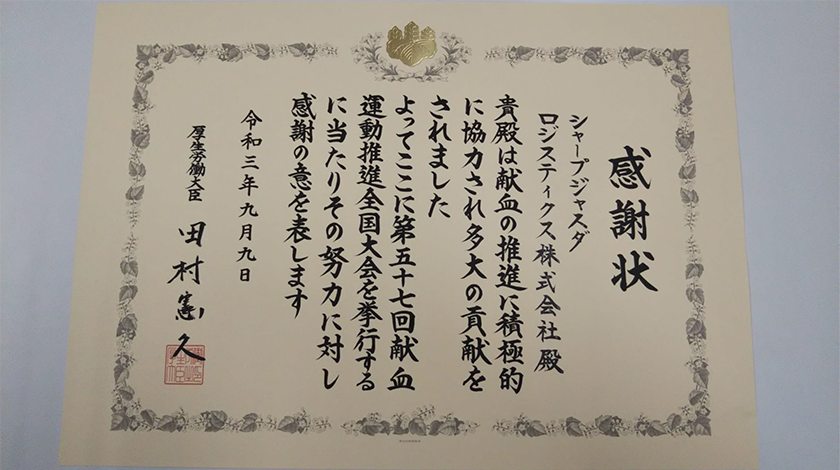 感謝状
シャープジャスダ
ロジスティクス株式会社殿
貴殿は献血の推進に積極的
に協力され多大の貢献を
されました
よってここに第五十七回献血
運動推進全国大会を挙行する
に当たりその努力に対し
感謝の意を表します
令和三年九月九日
厚生労働大臣 田村憲久